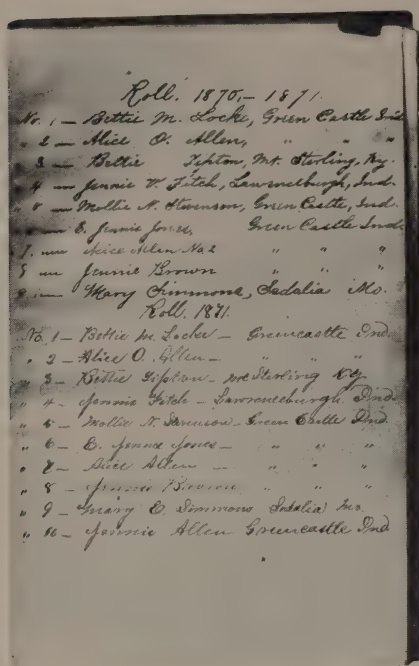 "Roll." 1870,—1871.
No. 1 — Bettie M. Locke, Green Castle Ind
" 2 — Alice O. Allen, " " "
" 3 — Bettie Tipton, Mt. Sterling, Ky.
" 4 — Jennie V. Fitch, Lawrenceburgh, Ind.
" 5 — Mollie N. Stevenson, Green Castle, Ind.
— E. Jennie Jones, Green Castle Ind.
7. — Alice Allen No. 2 " " "
8 — Jennie Brown " " "
9 — Mary Simmons, Sedalia Mo.
Roll. 1871.
No. 1 — Bettie M. Locke — Greencastle Ind.
" 2 — Alice O. Allen — " " "
" 3 — Bettie Tipton — Mt Sterling Ky
" 4 — Jennie Fitch — Lawrenceburgh Ind.
" 5 — Mollie N. Stevenson — Green Castle Ind
" 6 — E. Jennie Jones — " " "
" 7 — Alice Allen — " " "
" 8 — Jennie Brown " " "
" 9 — Mary E. Simmons Sedalia Mo.
" 10 — Jennie Allen Greencastle Ind